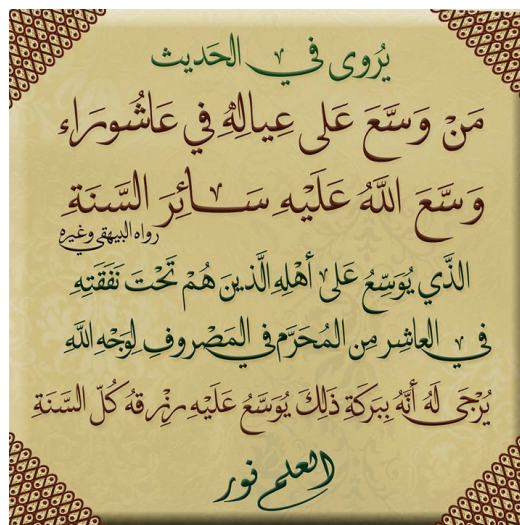 يُروى في الحَديث
مَنْ وَسَّعَ عَلى عِيالِهِ في عَاشُورَاء
وَسَّعَ اللَّهُ عَلَيْهِ سَائِرَ السَّنَةِ
رواه البيهقي وغيره
الذَّي يُوَسِّعُ عَلى أهْلِهِ الَّذينَ هُمْ تَحْتَ نَفَقَتِهِ
في العاشِر مِن المُحَرَّم في المَصْروفِ لِوَجْهِ اللَّهِ
يُرْجَى لَهُ أنَّهُ بِبَرَكَةِ ذلِكَ يُوَسَّعُ عَلَيْهِ رِزْقُهُ كُلّ السَّنَةِ
العلم نور